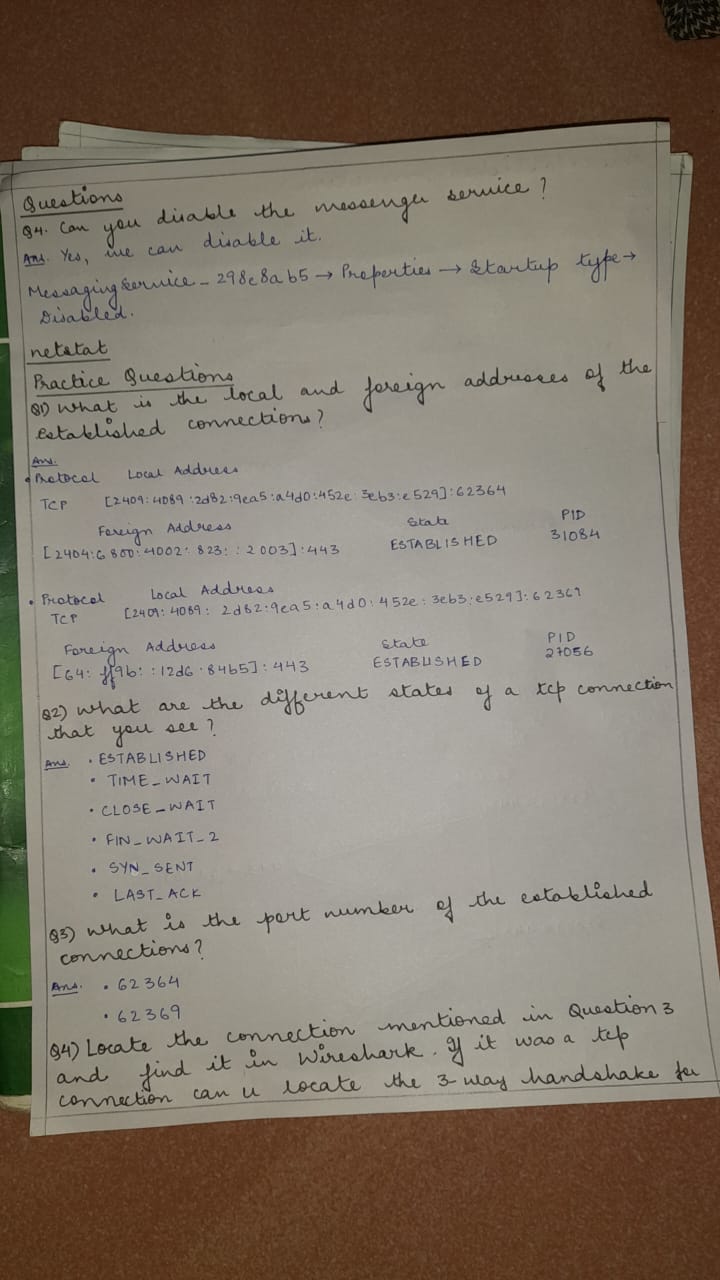 Questions
Q4. Can you disable the messenger service?
Ans. Yes, we can disable it.
Messaging Service - 298c8ab5 → Properties → Startup type →
Disabled.
netstat
Practice Questions
Q1) What is the local and foreign addresses of the
established connections?
Ans.
• Protocol Local Address
TCP [2409:4089:2d82:9ea5:a4d0:452e:3eb3:e529]:62364
Foreign Address State PID
[2404:6800:4002:823::2003]:443 ESTABLISHED 31084
• Protocol Local Address
TCP [2409:4089:2d82:9ea5:a4d0:452e:3eb3:e529]:62369
Foreign Address State PID
[64:ff9b::12d6:84b5]:443 ESTABLISHED 27056
Q2) What are the different states of a tcp connection
that you see?
Ans. • ESTABLISHED
• TIME_WAIT
• CLOSE_WAIT
• FIN_WAIT_2
• SYN_SENT
• LAST_ACK
Q3) What is the port number of the established
connections?
Ans. • 62364
• 62369
Q4) Locate the connection mentioned in Question 3
and find it in Wireshark. If it was a tcp
connection can u locate the 3-way handshake for